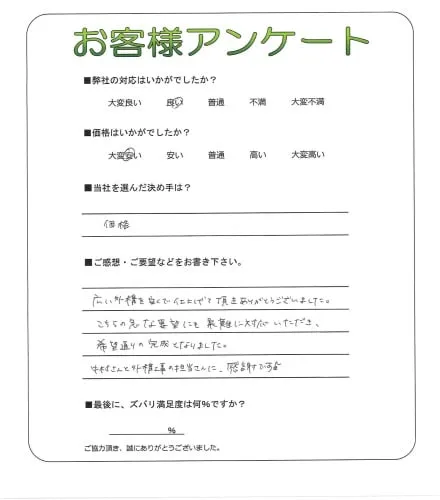 お客様アンケート
■弊社の対応はいかがでしたか？
大変良い 良い 普通 不満 大変不満
■価格はいかがでしたか？
大変安い 安い 普通 高い 大変高い
■当社を選んだ決め手は？
価格
■ご感想・ご要望などをお書き下さい。
広い外構を安くで仕上げて頂きありがとうございました。
こちらの急な要望にも 対応いただき、
希望通りの完成となりました。
木村さんと外構工事の担当さんに、感謝です
■最後に、ズバリ満足度は何%ですか？
%
ご協力頂き、誠にありがとうございました。